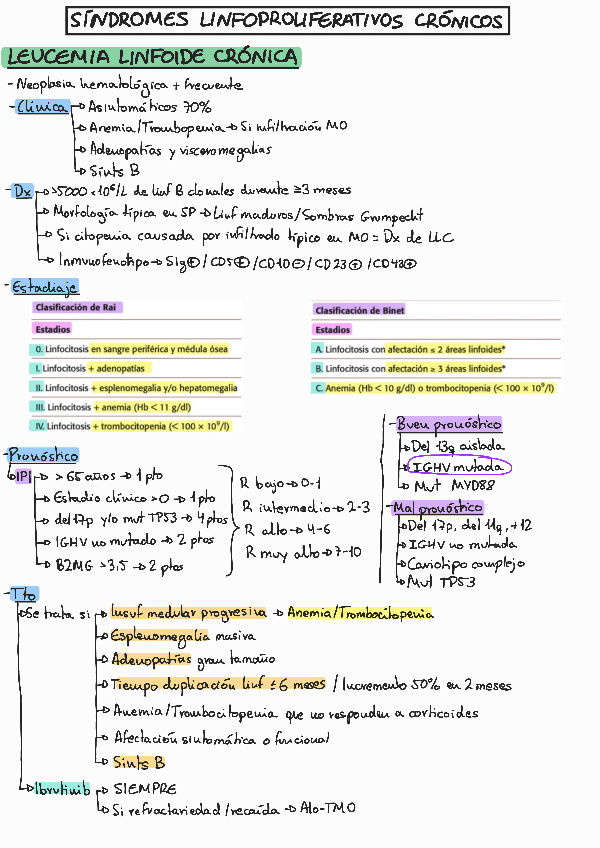 SÍNDROMES LINFOPROLIFERATIVOS CRÓNICOS
LEUCEMIA LINFOIDE CRÓNICA
- Neoplasia hematológica + frecuente
- Clínica → Asintomáticos 70%
→ Anemia/Trombopenia → Si infiltración MO
→ Adenopatías y visceromegalias
→ Sínts B
- Dx → >5000 × 10⁶/L de linf B clonales durante ≥3 meses
→ Morfología típica en SP → Linf maduros/Sombras Grumpecht
→ Si citopenia causada por infiltrado típico en MO = Dx de LLC
→ Inmunofenotipo → SIg⊕ / CD5⊕ / CD10⊖ / CD23⊕ / CD43⊕
- Estadiaje
Clasificación de Rai
Estadios
0. Linfocitosis en sangre periférica y médula ósea
I. Linfocitosis + adenopatías
II. Linfocitosis + esplenomegalia y/o hepatomegalia
III. Linfocitosis + anemia (Hb < 11 g/dl)
IV. Linfocitosis + trombocitopenia (< 100 × 10⁹/l)
Clasificación de Binet
Estadios
A. Linfocitosis con afectación ≤ 2 áreas linfoides*
B. Linfocitosis con afectación ≥ 3 áreas linfoides*
C. Anemia (Hb < 10 g/dl) o trombocitopenia (< 100 × 10⁹/l)
- Pronóstico
→ IPI → > 65 años → 1 pto
→ Estadio clínico >0 → 1 pto
→ del17p y/o mut TP53 → 4 ptos
→ IGHV no mutado → 2 ptos
→ B2MG >3,5 → 2 ptos
R bajo → 0-1
R intermedio → 2-3
R alto → 4-6
R muy alto → 7-10
- Buen pronóstico
→ Del 13q aislada
→ IGHV mutada
→ Mut MYD88
- Mal pronóstico
→ Del 17p, del 11q, +12
→ IGHV no mutada
→ Cariotipo complejo
→ Mut TP53
- Tto
→ Se trata si → Insuf medular progresiva → Anemia/Trombocitopenia
→ Esplenomegalia masiva
→ Adenopatías gran tamaño
→ Tiempo duplicación linf ≤6 meses / Incremento 50% en 2 meses
→ Anemia/Trombocitopenia que no responden a corticoides
→ Afectación sintomática o funcional
→ Sínts B
→ Ibrutinib → SIEMPRE
→ Si refractariedad/recaída → Alo-TMO